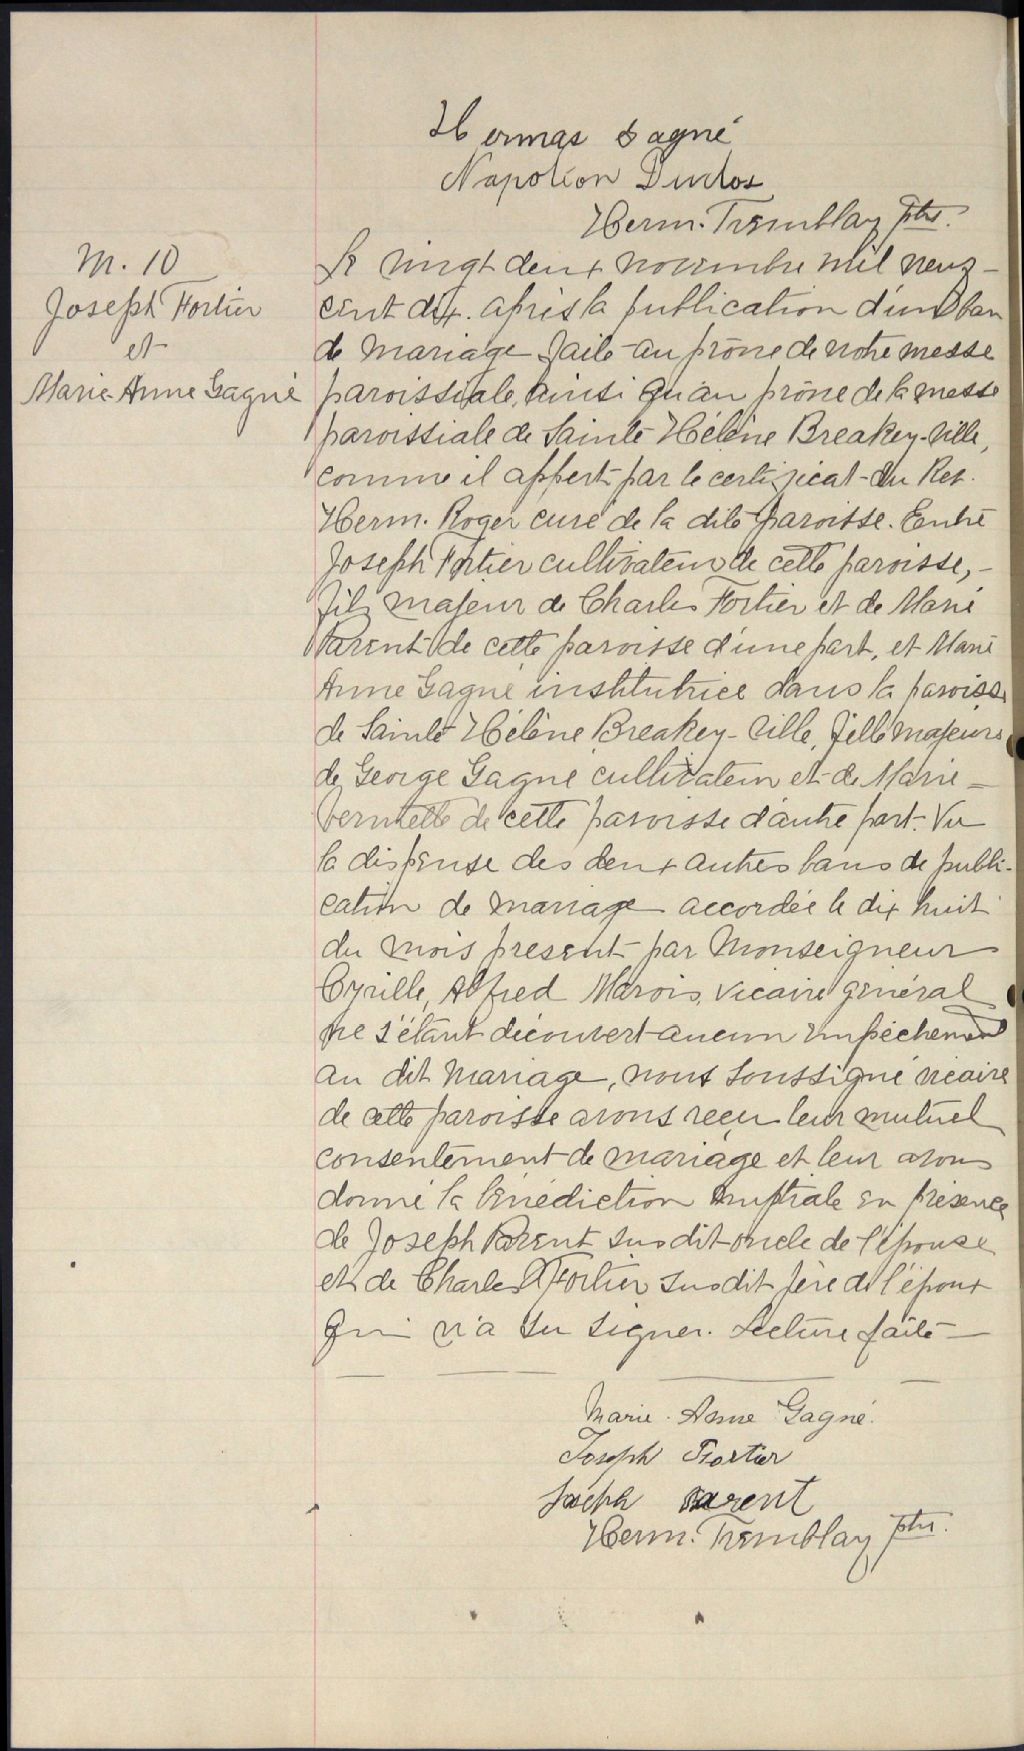 Hermas Gagné
Napoléon Duclos
Herm. Tremblay ptre.
M. 10
Joseph Fortier
et
Marie-Anne Gagné
Le vingt deux novembre mil neuf-
cent dix. après la publication d'un ban
de mariage faite au prône de notre messe
paroissiale, ainsi qu'au prône de la messe
paroissiale de Sainte Hélène Breakey-ville,
comme il appert par le certificat du Rev.
Herm. Roger curé de la dite paroisse. Entre
Joseph Fortier cultivateur de cette paroisse,-
fils majeur de Charles Fortier et de Marie
Parent de cette paroisse d'une part, et Marie
Anne Gagné institutrice dans la paroisse
de Sainte Hélène Breakey-ville, fille majeure
de George Gagné cultivateur et de Marie-
Vermette de cette paroisse d'autre part. Vu
la dispense des deux autres bans de publi-
cation de mariage accordée le dix huit
du mois présent par Monseigneur
Cyrille, Alfred Marois, vicaire général
ne s'étant découvert aucun empêchement
au dit mariage, nous soussigné vicaire
de cette paroisse avons reçu leur mutuel
consentement de mariage et leur avons
donné la bénédiction nuptiale en présence
de Joseph Parent susdit oncle de l'épouse
et de Charles Fortier susdit père de l'époux
qui n'a su signer. Lecture faite-
Marie-Anne Gagné.
Joseph Fortier
Joseph Parent
Herm. Tremblay ptre.